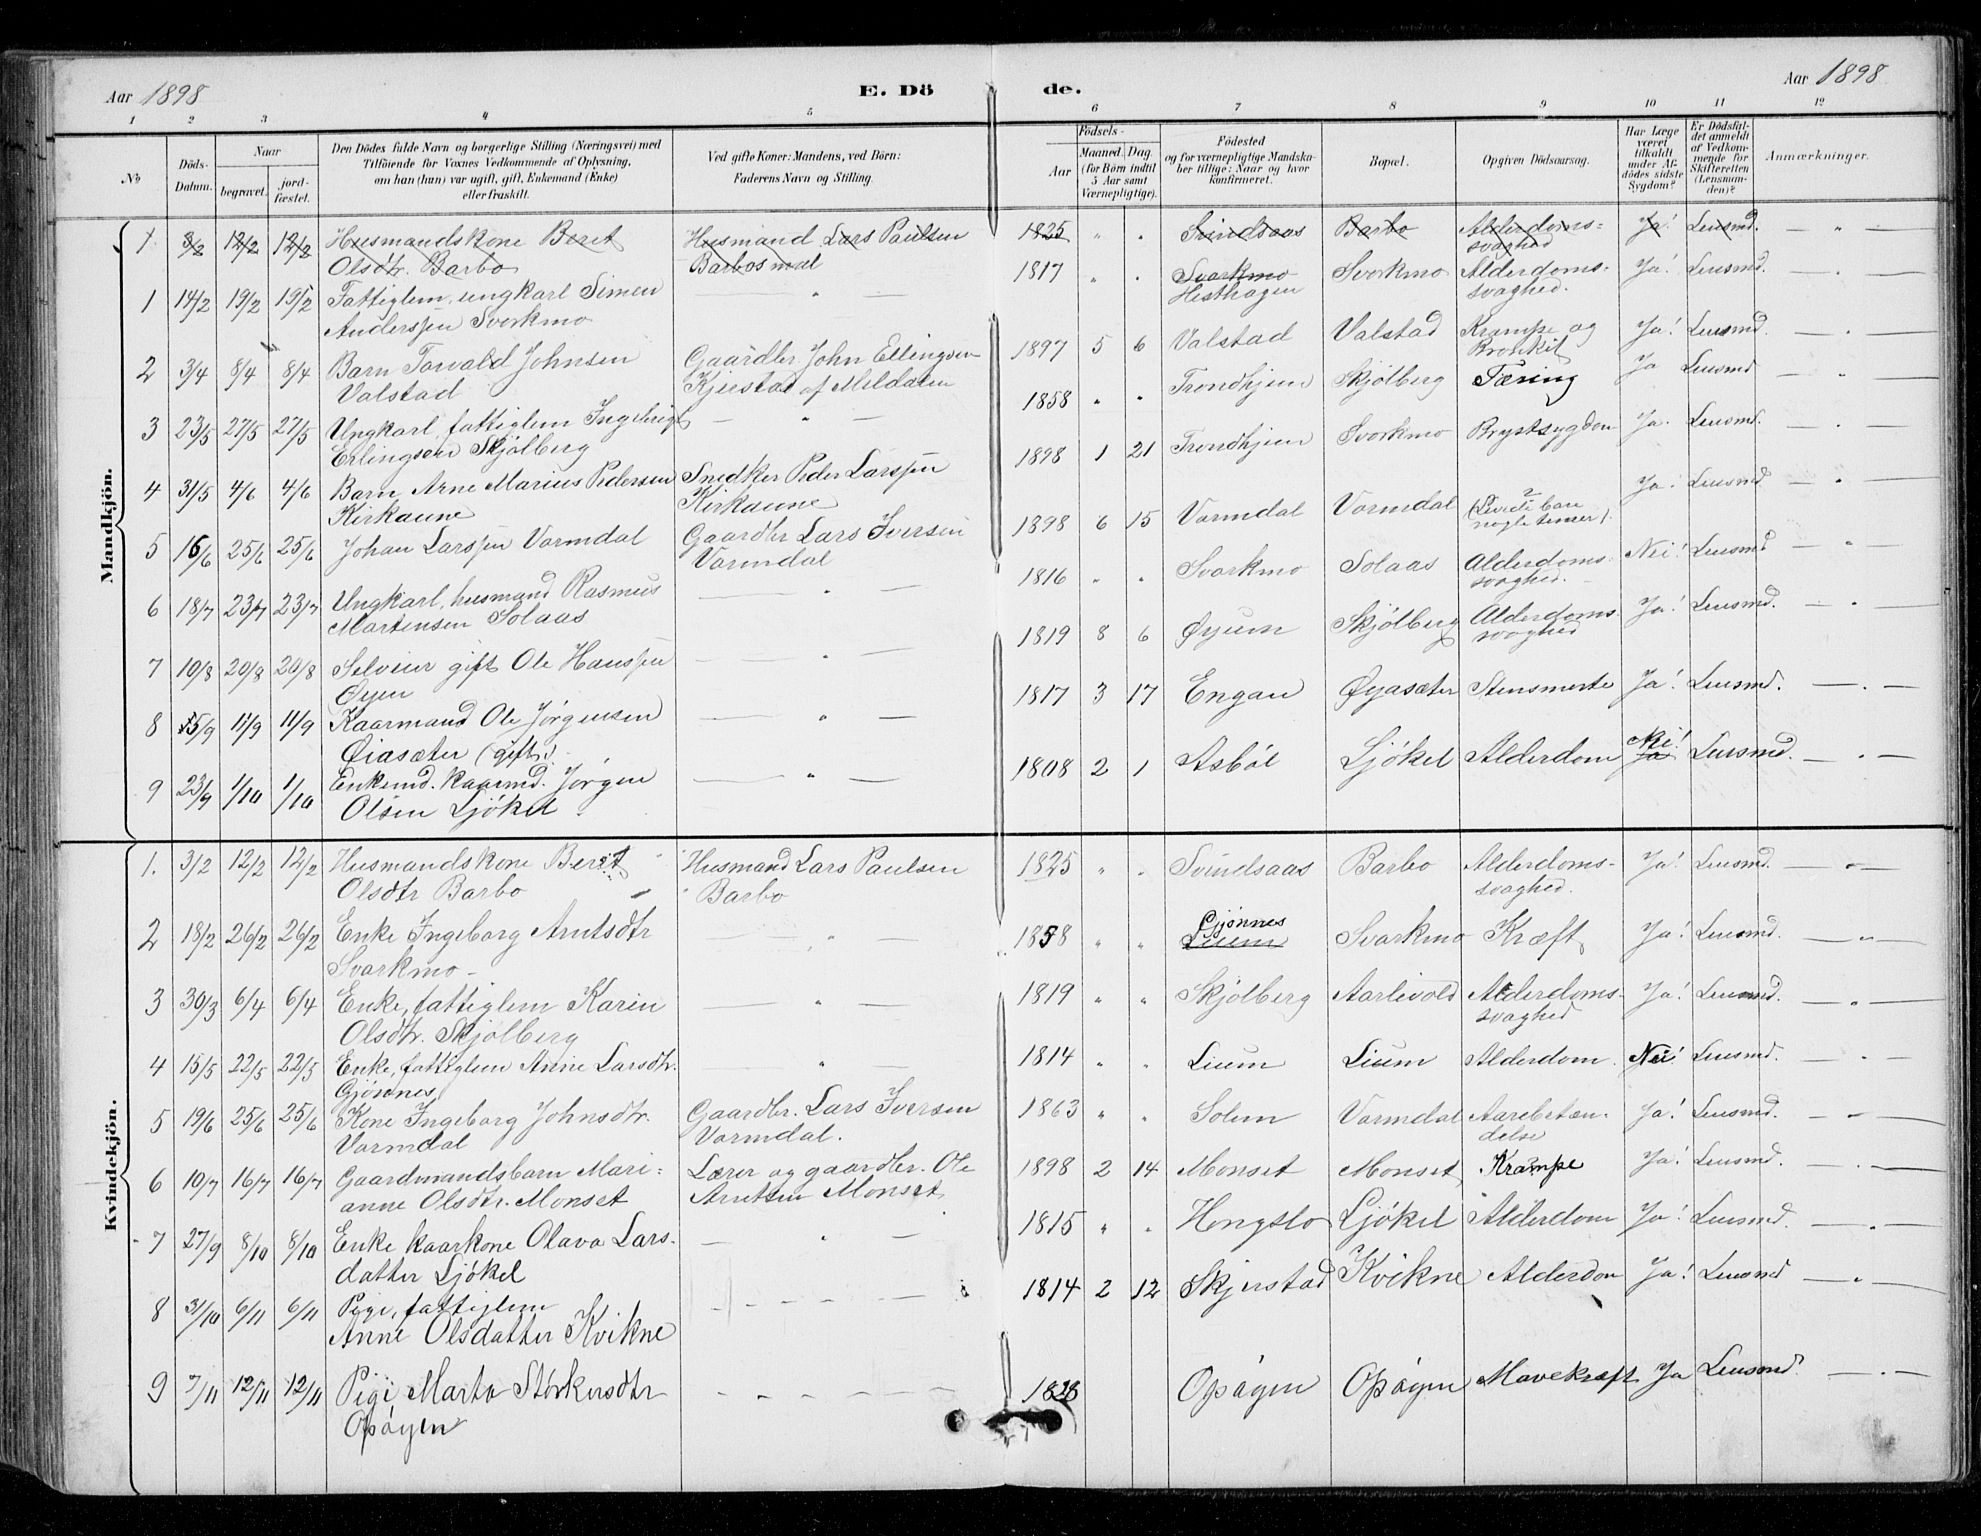 Aar 1898
E. Dö de.
Aar 1898
1 2 3 4 5 6 7 8 9 10 11 12
No
Döds-Datum.
Naar
begravet.
jord-fæstet.
Den Dödes fulde Navn og borgerlige Stilling (Næringsvei) med
Tilföiende for Voxnes Vedkommende af Oplysning,
om han (hun) var ugift, gift, Enkemand (Enke)
eller fraskilt.
Ved gifte Koner: Mandens, ved Börn:
Faderens Navn og Stilling.
Födsels-
Aar
Maaned. Dag.
(for Börn indtil
5 Aar samt
Værnepligtige).
Födested
og for værnepligtige Mandska-
ber tillige: Naar og hvor
konfirmeret.
Bopæl.
Opgiven Dödsaarsag.
Har Læge
været
tilkaldt
under Af-
dödes sidste
Sygdom?
Er Dödsfal-
det anmeldt
af Vedkom-
mende for
Skifteretten
(Lensman-
den)?
Anmærkninger.
Mandkjön.
1 3/2 12/2 12/2 Husmandskone Beret Husmand Lars Paulsen 1825 " " Svindsaas Barbo Alderdoms- Ja! Lensmd. — " —
Olsdtr. Barbo Barbosmal svaghed
1 14/2 19/2 19/2 Fattiglem, ungkarl Simen — " — 1817 " " Svorkmo Svorkmo Alderdoms- Ja! Lensmd. — " —
Anderssen Svorkmo Hesthagen svaghed.
2 3/4 8/4 8/4 Barn Torvald Johnsen Gaardbr. John Ellingsen 1897 5 6 Valstad Valstad Krampe og Ja! Lensmd. — " —
Valstad Kjerstad af Meldalen Bronkit
3 23/5 27/5 27/5 Ungkarl, fattiglem Ingebrigt — " — 1858 " " Trondhjem Skjølberg Tæring Ja Lensmd — " —
Erlingsen Skjølberg
4 31/5 4/6 4/6 Barn Arne Marius Pedersen Snedker Peder Larssen 1898 1 21 Trondhjem Svorkmo Brystsygdom Ja. Lensmd. — " —
Kirkaune Kirkaune
5 16/6 25/6 25/6 Johan Larssen Vormdal Gaardbr Lars Iversen 1898 6 15 Vormdal Vormdal (Levede bare Ja! Lensmd — " —
Vormdal nogle timer).
6 18/7 23/7 23/7 Ungkarl, husmand Rasmus — " — 1816 " " Svorkmo Solaas Alderdoms- Nei! Lensmd — " —
Martinsen Solaas svaghed.
7 10/8 20/8 20/8 Selveier gift Ole Hanssen — " — 1819 8 6 Øyum Skjølberg Alderdoms- Ja! Lensmd. — " —
Øyen svaghed
8 5/9 11/9 11/9 Kaarmand Ole Jørgensen — " — 1817 3 17 Engan Øyasæter Stensmerte Ja! Lensmd. — " —
Øiasæter (gift).
9 23/9 1/10 1/10 Enkemd. kaarmd. Jørgen — " — 1808 2 1 Asbøl Ljøkel Alderdom Nei! Ja Lensmd. — " —
Olsen Ljøkel
Kvindekjön.
1. 3/2 12/2 12/2 Husmandskone Beret Husmand Lars Paulsen 1825 " " Svindsaas Barbo Alderdoms- Ja! Lensmd. — " —
Olsdtr Barbo Barbo svaghed.
2 18/2 26/2 26/2 Enke Ingeborg Arntsdtr — " — 1838 " " Gjønnes Lium Svorkmo Kræft Ja! Lensmd. — " —
Svorkmo
3 30/3 6/4 6/4 Enke, fattiglem Karin — " — 1819 " " Skjølberg Aarlivold Alderdoms- Ja! Lensmd. — " —
Olsdtr. Skjølberg svaghed
4 15/5 22/5 22/5 Enke, fattiglem Anne Larsdtr. — " — 1814 " " Lium Lium Alderdom. Nei! Lensmd. — " —
Gjønnes
5 19/6 25/6 25/6 Kone Ingeborg Johnsdtr. Gaardbr. Lars Iversen 1863 " " Solem Vormdal Aarebetæn- Ja! Lensmd. — " —
Vormdal Vormdal. delse
6 10/7 16/7 16/7 Gaardmandsbarn Mari- Lærer og gaardbr. Ole 1898 2 14 Monset Monset Krampe Ja! Lensmd. — " —
anne Olsdtr. Monset Arntsen Monset
7 27/9 8/10 8/10 Enke kaarkone Olava Lars- — " — 1815 " " Hongslo Ljøkel Alderdom Ja! Lensmd. — " —
datter Ljøkel
8 31/10 6/11 6/11 Pige, fattiglem 1814 2 12 Skjerstad Kvikne Alderdom Ja! Lensmd — " —
Anne Olsdatter Kvikne
9 7/11 12/11 12/11 Pige Marta Størkersdtr 1828 Opøyen Opøyen Mavekræft Ja Lensmd. — " —
Opøyen